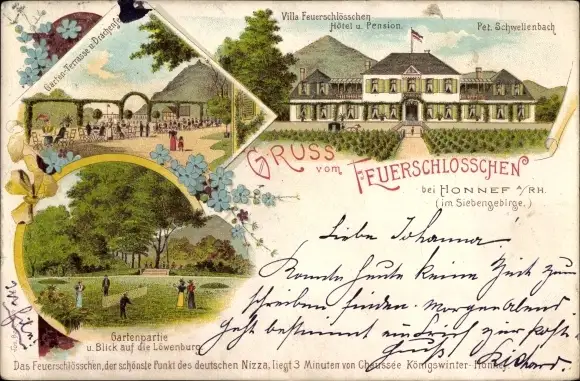 Garten-Terrasse u. Drachenfels
Villa Feuerschlösschen
Hôtel u. Pension.
Pet. Schwellenbach
GRUSS
vom FEUERSCHLÖSSCHEN
bei HONNEF A/RH.
(im Siebengebirge.)
Liebe Johanna
Konnte heute keine Zeit zum
schreiben finden. Morgen Abend
geht bestimmt zur Post
Gruß Richard.
Gartenpartie
u. Blick auf die Löwenburg
Das Feuerschlösschen, der schönste Punkt des deutschen Nizza, liegt 3 Minuten von Chaussée Königswinter-Honnef